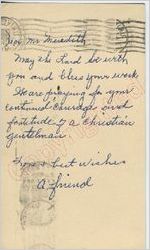 Dear Mr Meredith
May the Lord be with
you and bless your work.
We are praying for your
continued courage and
fortitude of a Christian
gentleman
best wishes
A friend